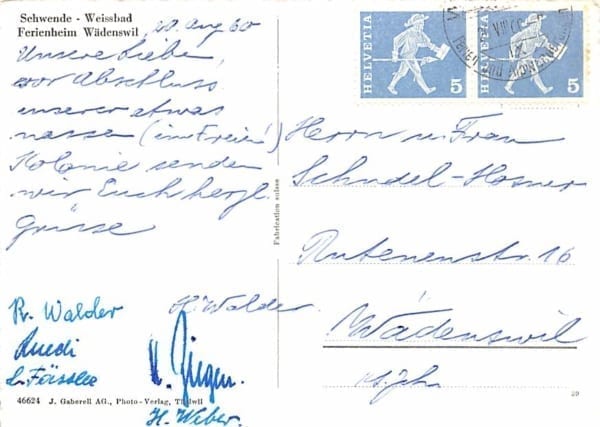 Schwende - Weissbad
Ferienheim Wädenswil
20. Aug 60
Unsere Lieben,
vor Abschluss
unserer etwas
nassen (im Freien!)
Kolonie senden
wir Euch herzl.
Grüsse
R. Walder
H. Walder
Ruedi
L. Fässler
H. Weber.
HELVETIA 5
HELVETIA 5
VIII
Fabrication suisse
Herrn u. Frau
Schudel-Hosner
16
Wädenswil
46624 J. Gaberell AG., Photo-Verlag, Thalwil